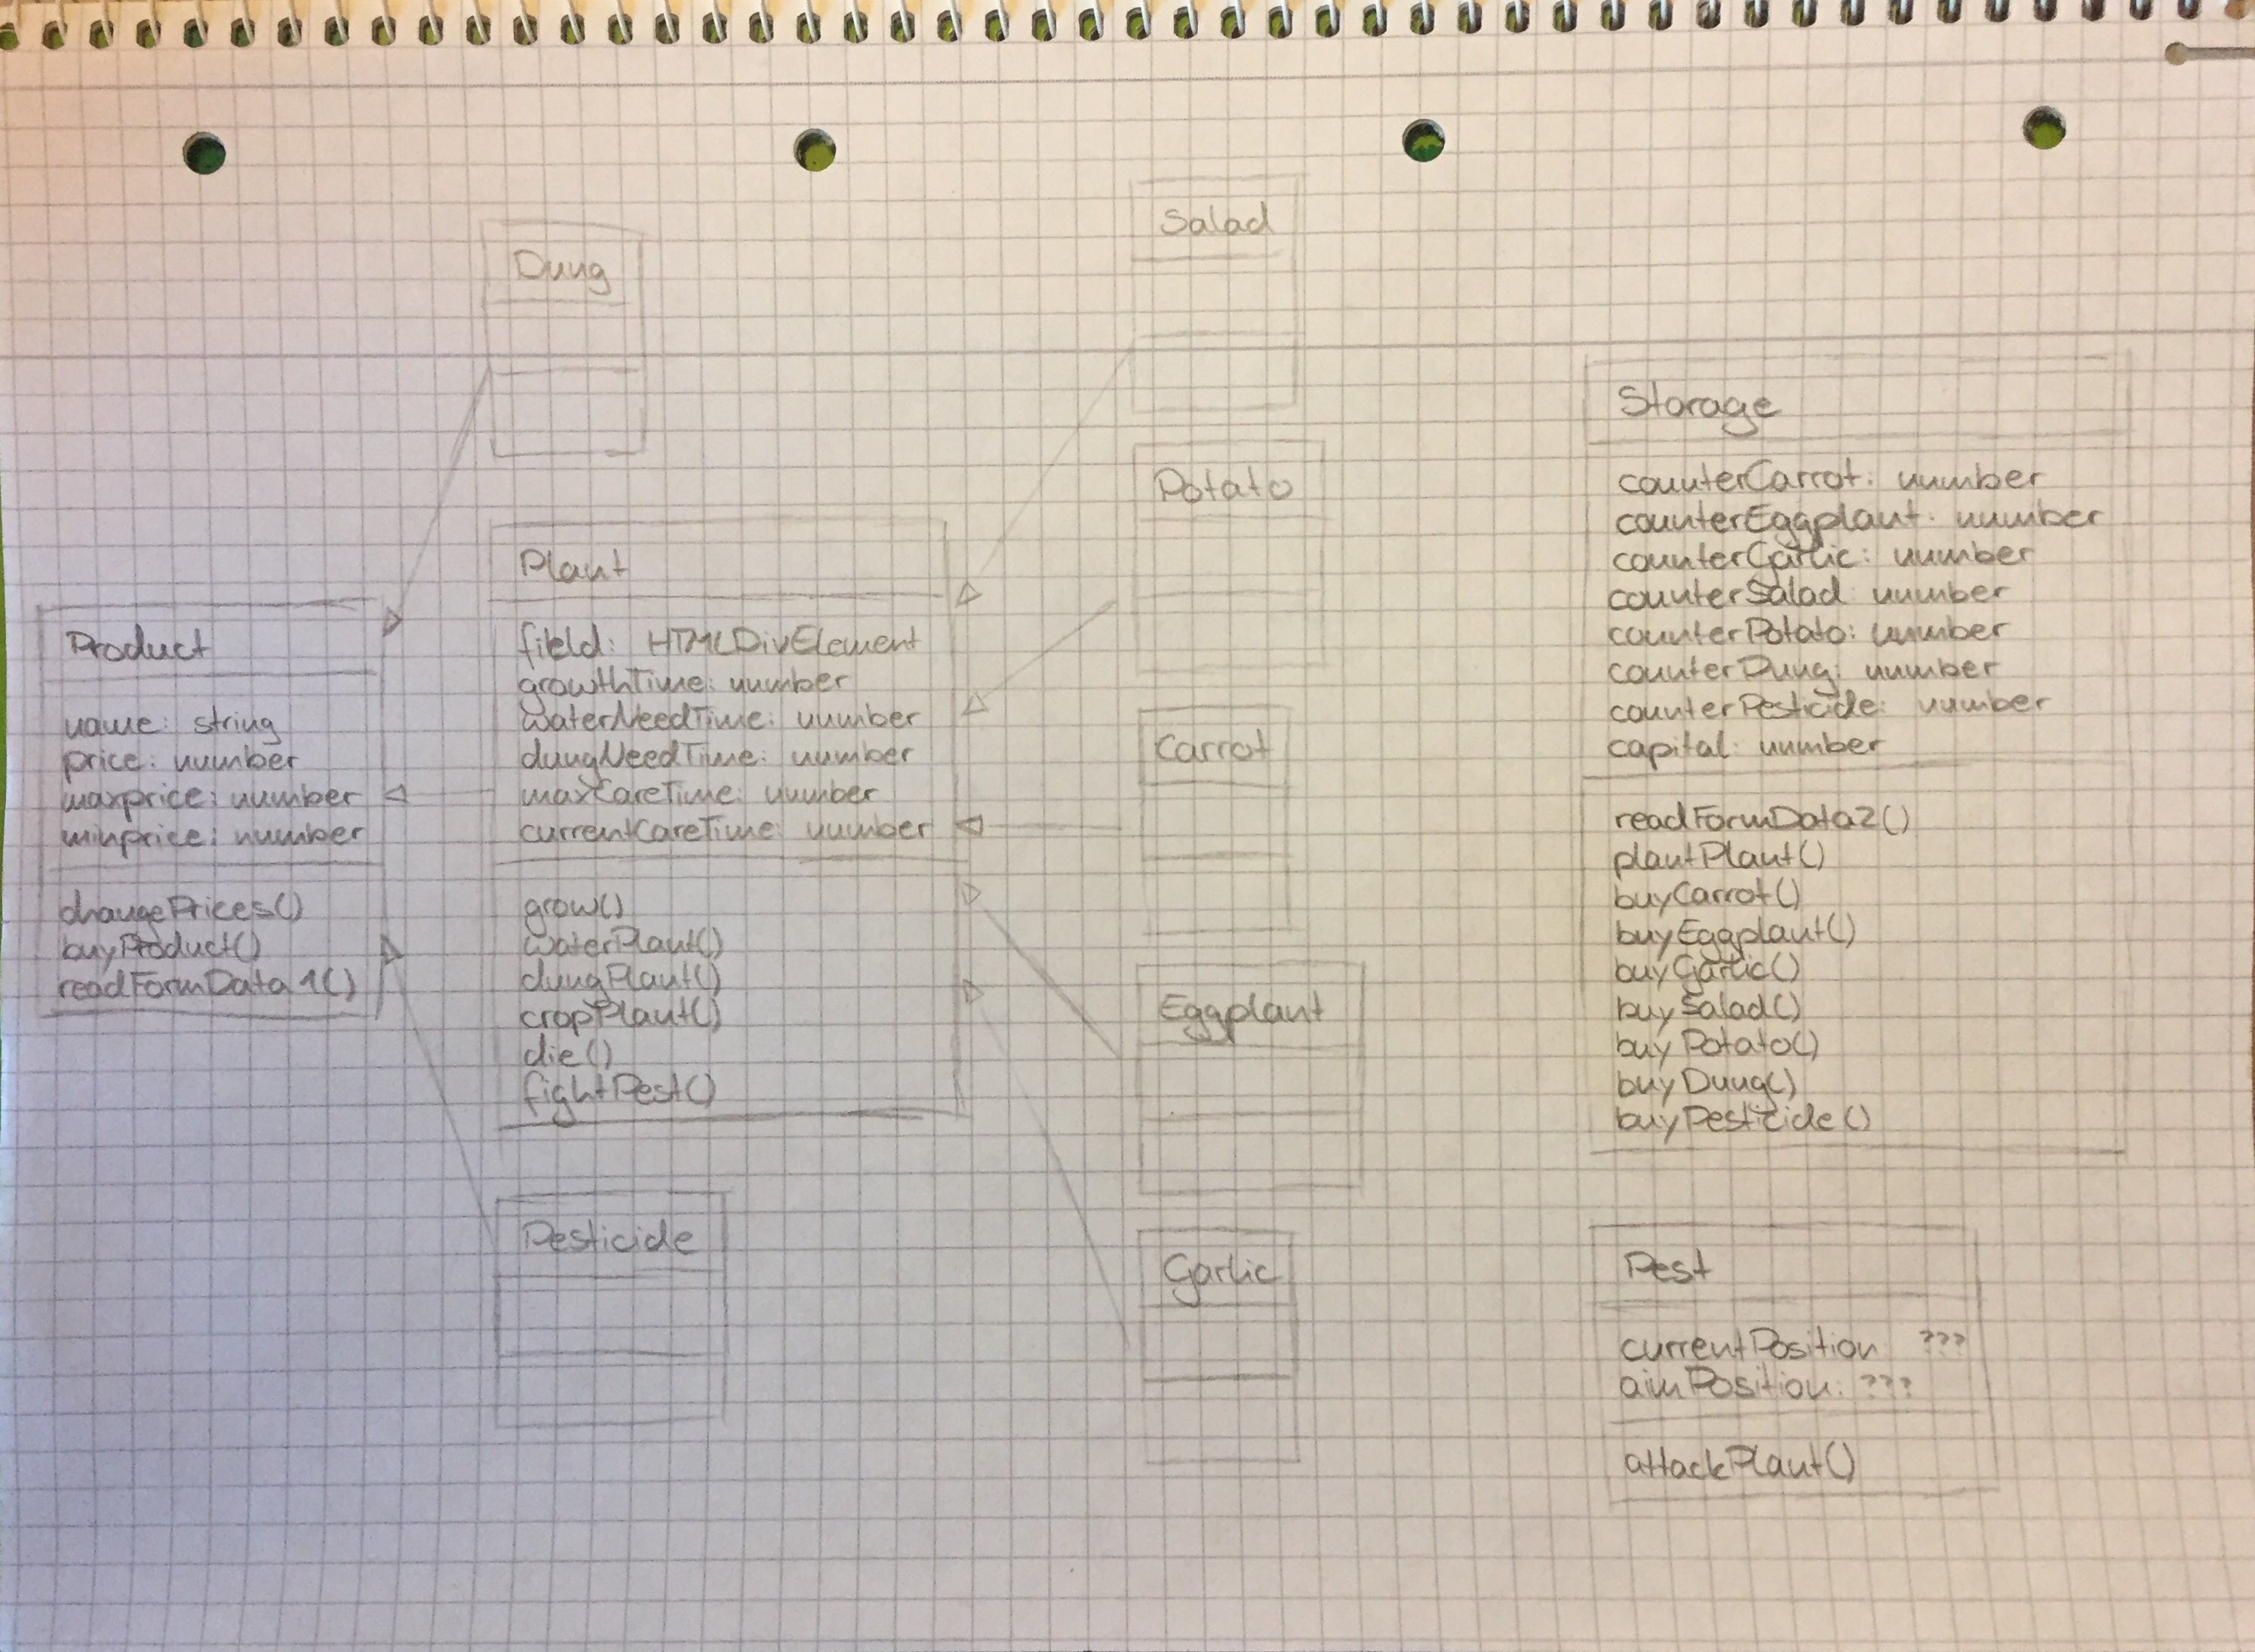 Dung
Product
name: string
price: number
maxprice: number
minprice: number
changePrices()
buyProduct()
readFormData1()
Plant
field: HTMLDivElement
growthTime: number
waterNeedTime: number
dungNeedTime: number
maxCareTime: number
currentCareTime: number
grow()
waterPlant()
dungPlant()
cropPlant()
die()
fightPest()
Pesticide
Salad
Potato
Carrot
Eggplant
Garlic
Storage
counterCarrot: number
counterEggplant: number
counterGarlic: number
counterSalad: number
counterPotato: number
counterDung: number
counterPesticide: number
capital: number
readFormData2()
plantPlant()
buyCarrot()
buyEggplant()
buyGarlic()
buySalad()
buyPotato()
buyDung()
buyPesticide()
Pest
currentPosition ???
aimPosition: ???
attackPlant()